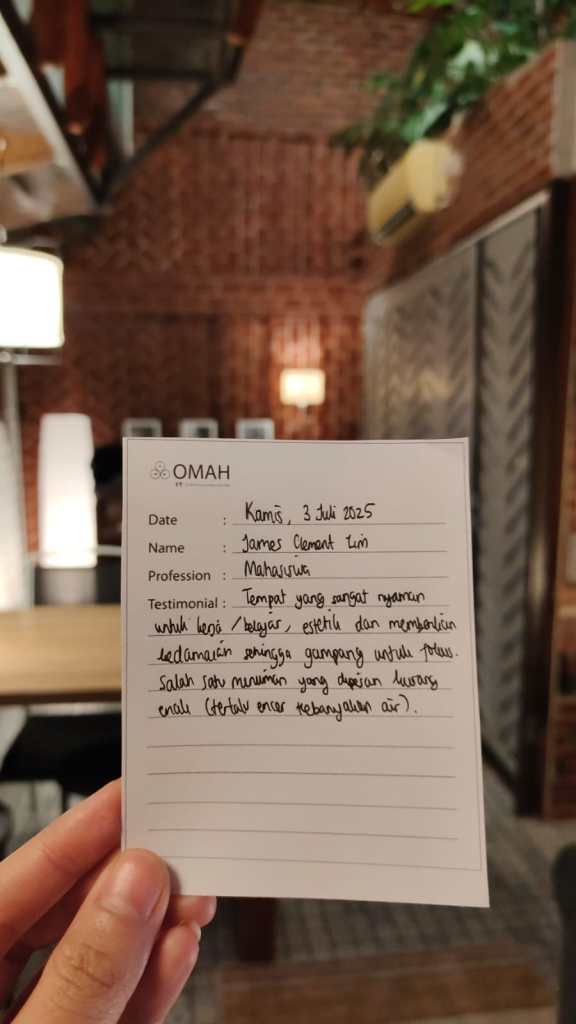 OMAH
Date : Kamis, 3 Juli 2025
Name : James Clement Lim
Profession : Mahasiswa
Testimonial : Tempat yang sangat nyaman
untuk kerja / belajar, estetik dan memberikan
kedamaian sehingga gampang untuk fokus.
Salah satu minuman yang dipesan kurang
enak (terlalu encer kebanyakan air).